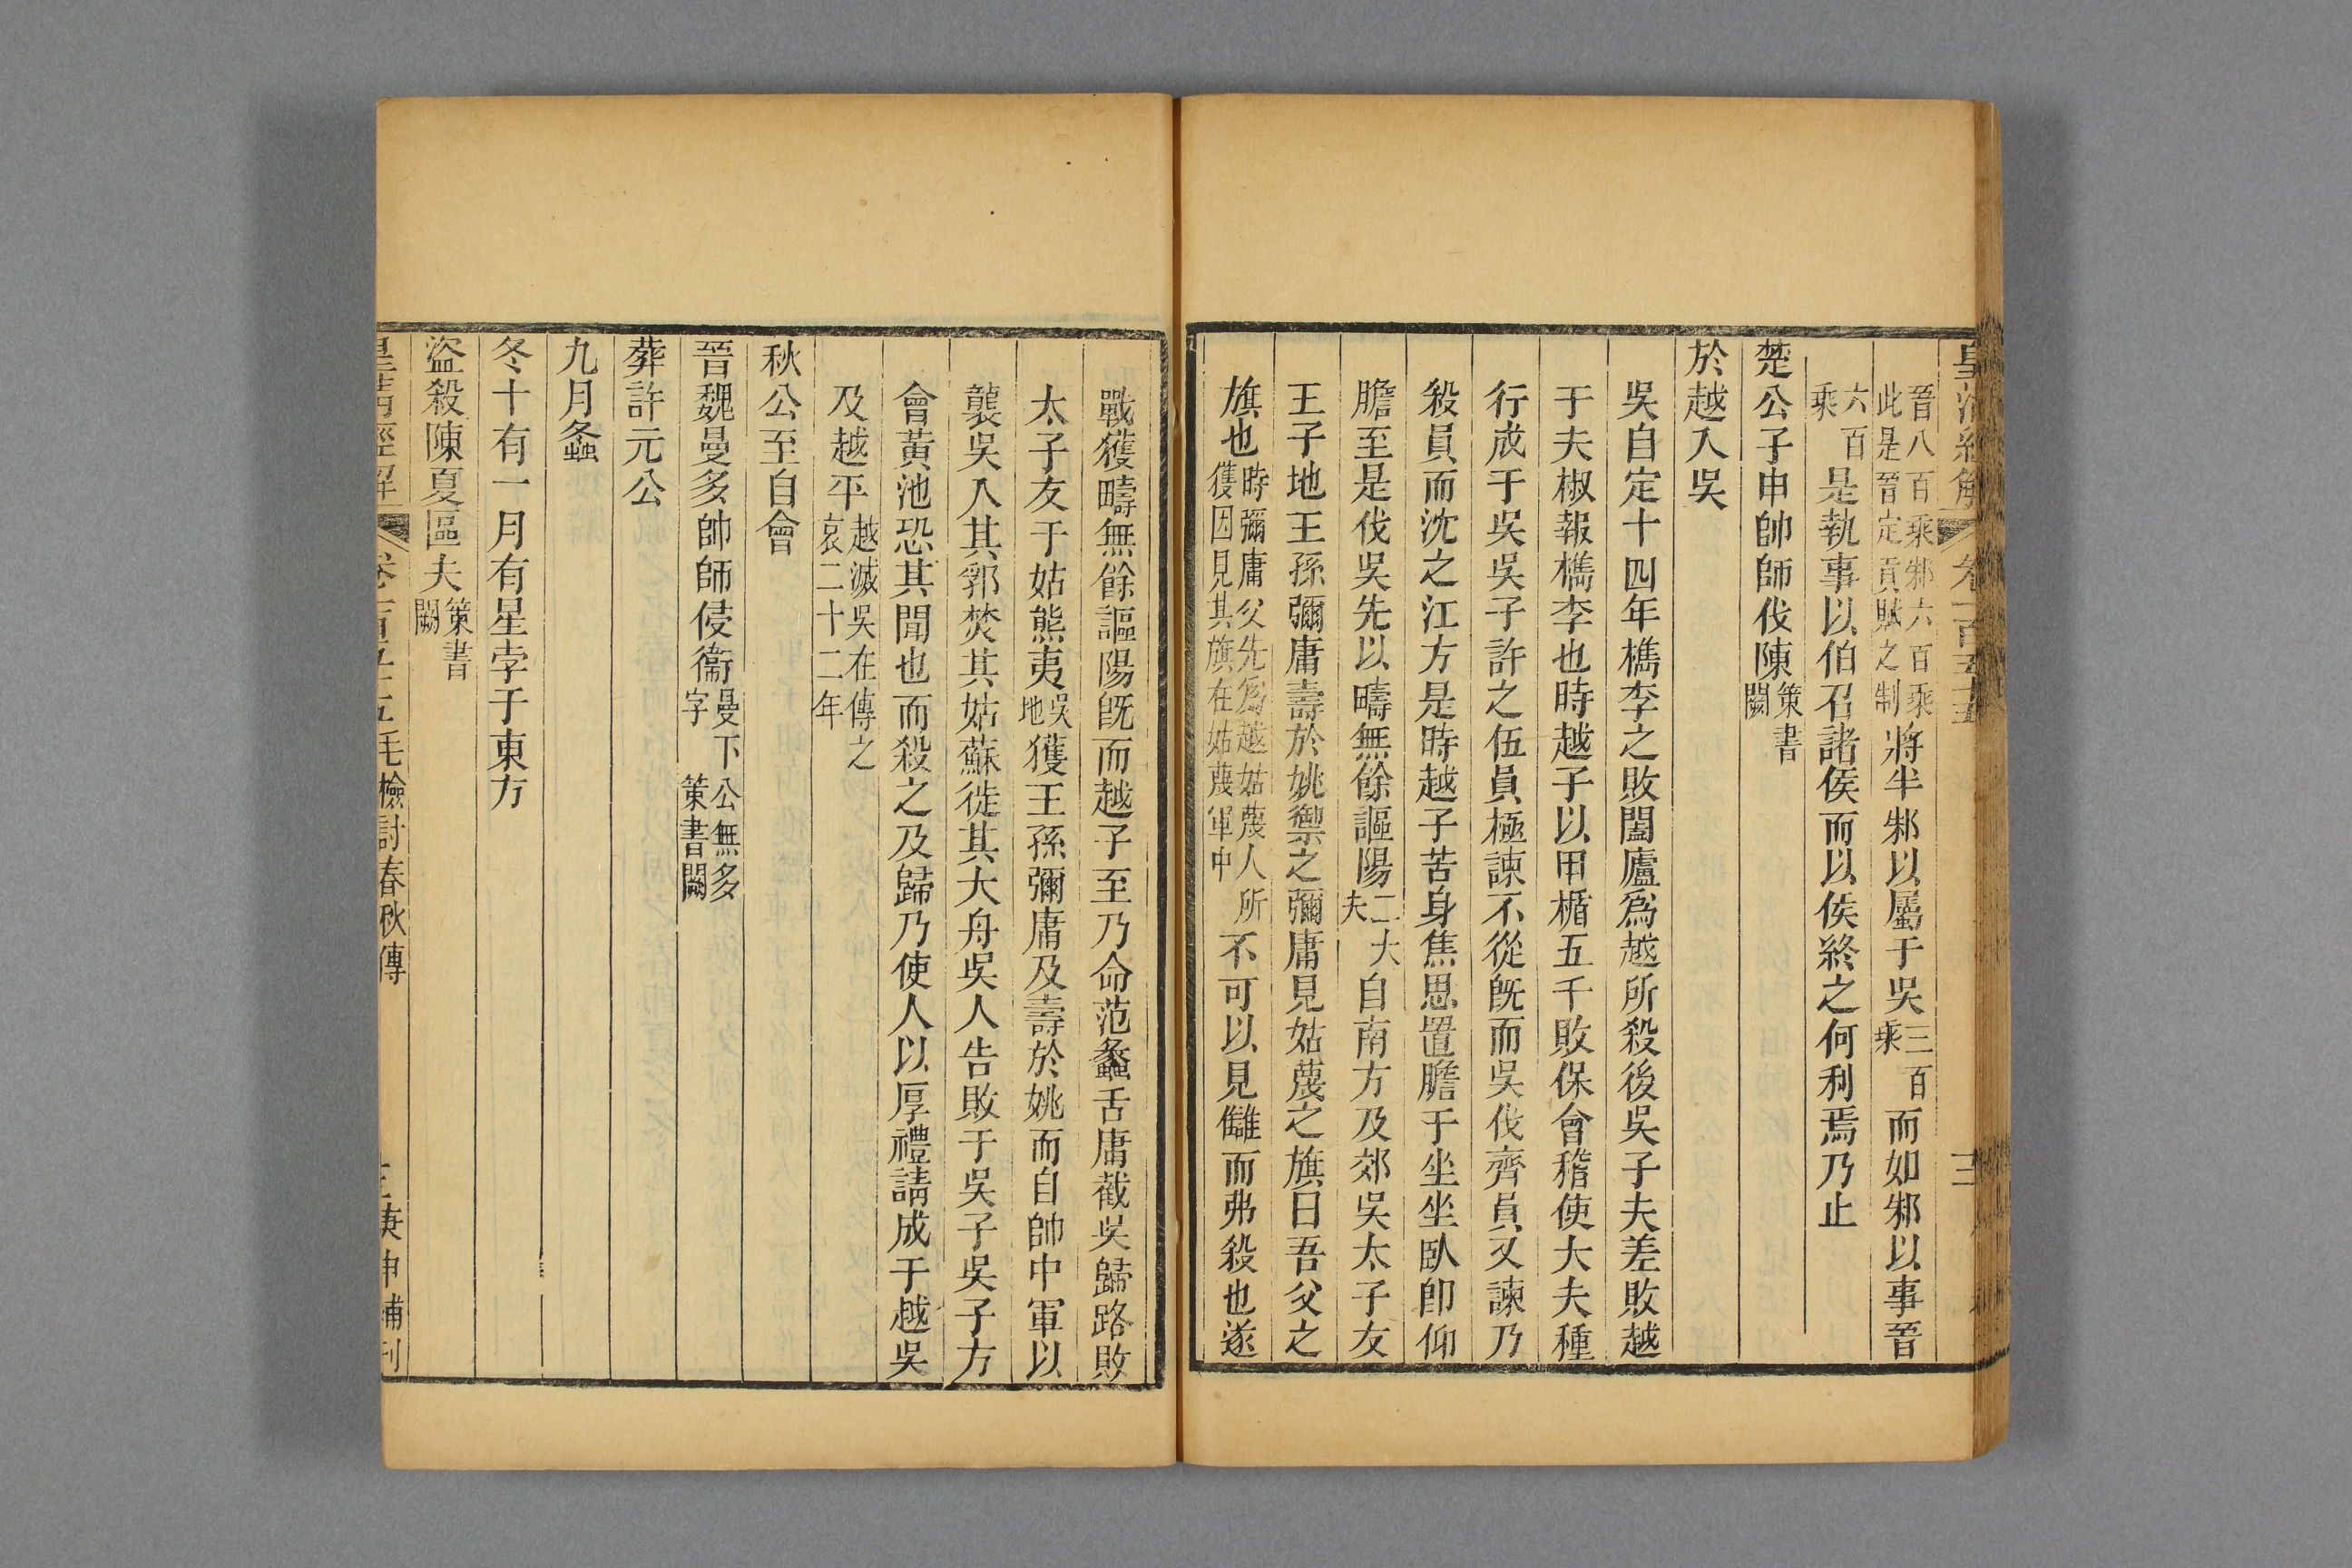 皇清經解 卷一百五十五 三
晉八百乘邾六百乘此是晉定貢賦之制將半邾以屬于吳三百乘而如邾以事晉
六百乘是執事以伯召諸侯而以侯終之何利焉乃止
楚公子申帥師伐陳策書闕
於越入吳
吳自定十四年檇李之敗闔廬爲越所殺後吳子夫差敗越
于夫椒報檇李也時越子以甲楯五千敗保會稽使大夫種
行成于吳吳子許之伍員極諫不從旣而吳伐齊員又諫乃
殺員而沈之江方是時越子苦身焦思置膽于坐坐臥卽仰
膽至是伐吳先以疇無餘謳陽二大夫自南方及郊吳太子友
王子地王孫彌庸壽於姚禦之彌庸見姑蔑之旗曰吾父之
旗也時彌庸父先爲越姑蔑人所獲因見其旗在姑蔑軍中不可以見讎而弗殺也遂
戰獲疇無餘謳陽旣而越子至乃命范蠡舌庸截吳歸路敗
太子友于姑熊夷吳地獲王孫彌庸及壽於姚而自帥中軍以
襲吳入其郛焚其姑蘇徙其大舟吳人告敗于吳子吳子方
會黃池恐其聞也而殺之及歸乃使人以厚禮請成于越吳
及越平越滅吳在傳之哀二十二年
秋公至自會
晉魏曼多帥師侵衞曼下公無多字 策書闕
葬許元公
九月螽
冬十有一月有星孛于東方
盜殺陳夏區夫策書闕
皇清經解 卷一百五十五 毛檢討春秋傳 三 庚申補刊